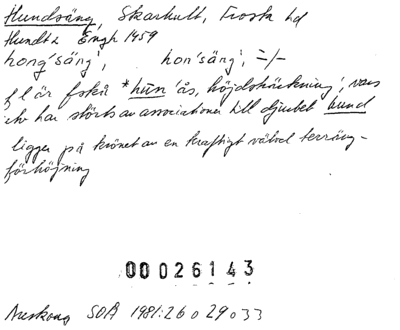 Hundsäng, Skarhult, Frosta hd
Hundtz Engh 1459
hong'säng', hon'säng', =/-
f l är fskå *hūn 'ås, höjdsträckning', vars
utv har störts av associationer till djuret hund
ligger på krönet av en kraftigt välvd terräng-
förhöjning
00026143
SOÅ 1981:26 o 29 o 33